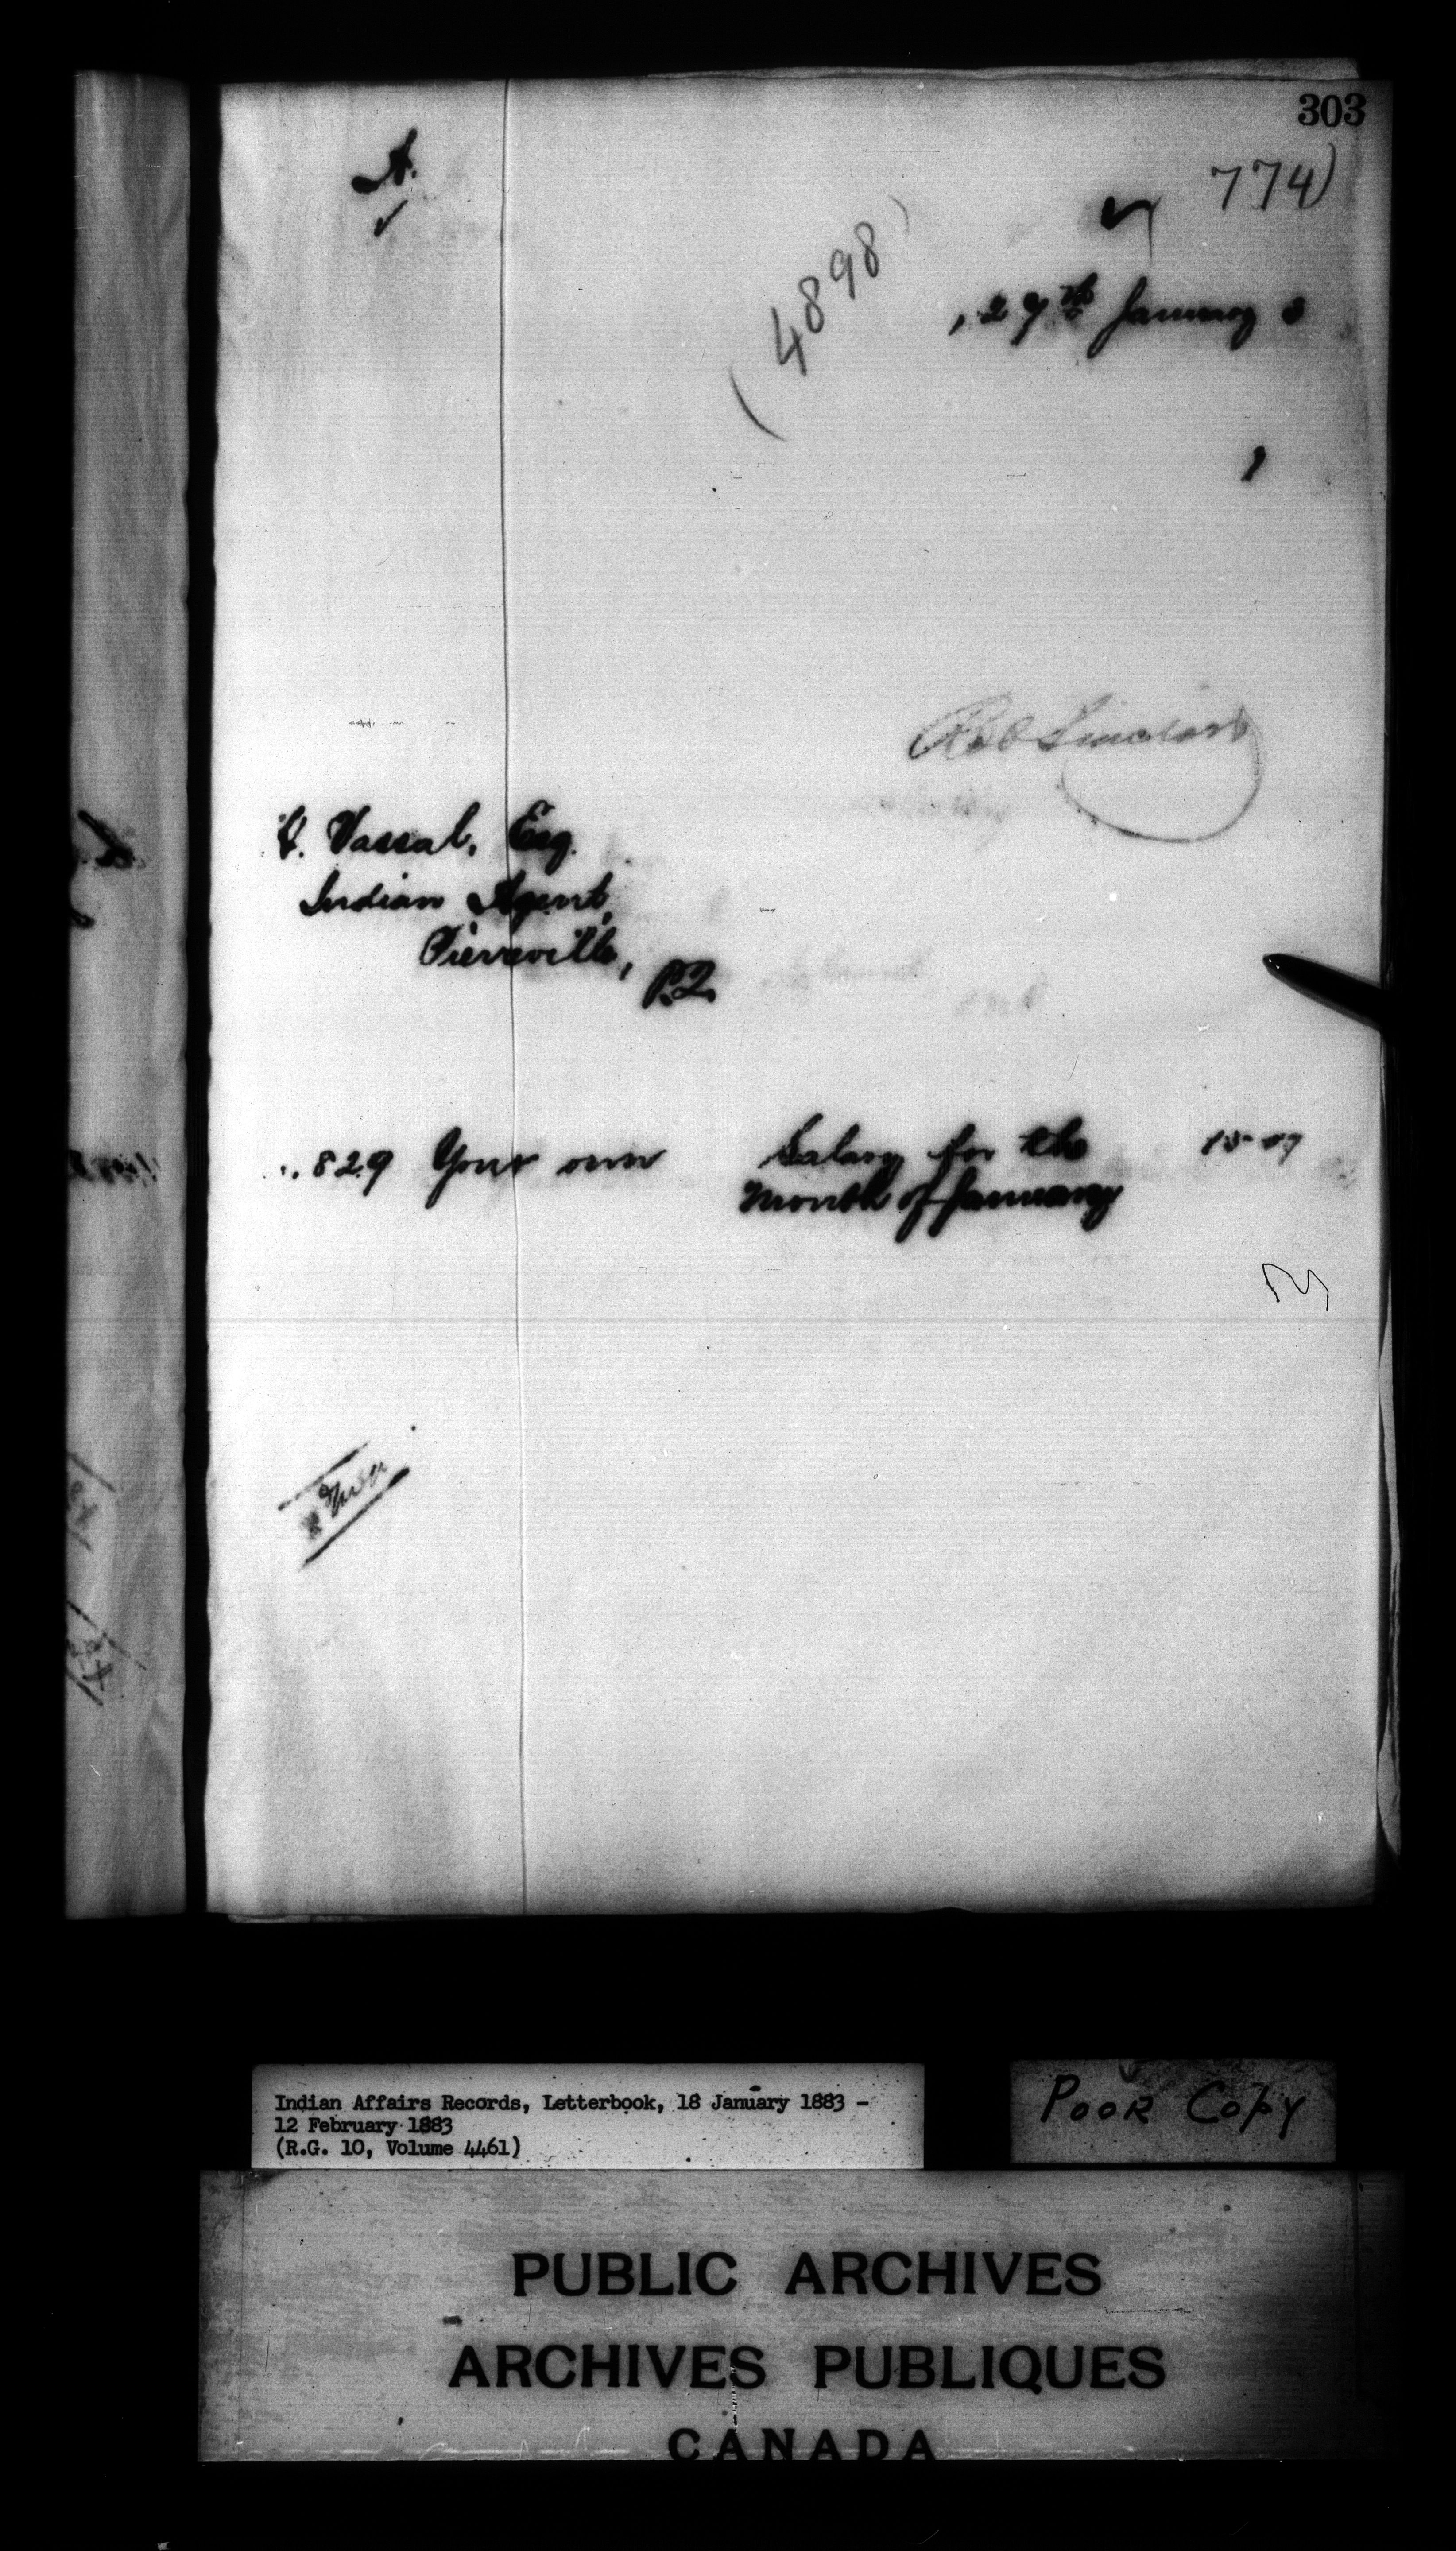 303
A.
774)
(4898)
29th January 3
Robt Sinclair
H. Vassal, Esq.
Indian Agent,
Pierreville,
P.Q.
829 Your own Salary for the
Month of January
Indian Affairs Records, Letterbook, 18 January 1883 -
12 February 1883
(R.G. 10, Volume 4461)
POOR COPY
PUBLIC ARCHIVES
ARCHIVES PUBLIQUES
CANADA